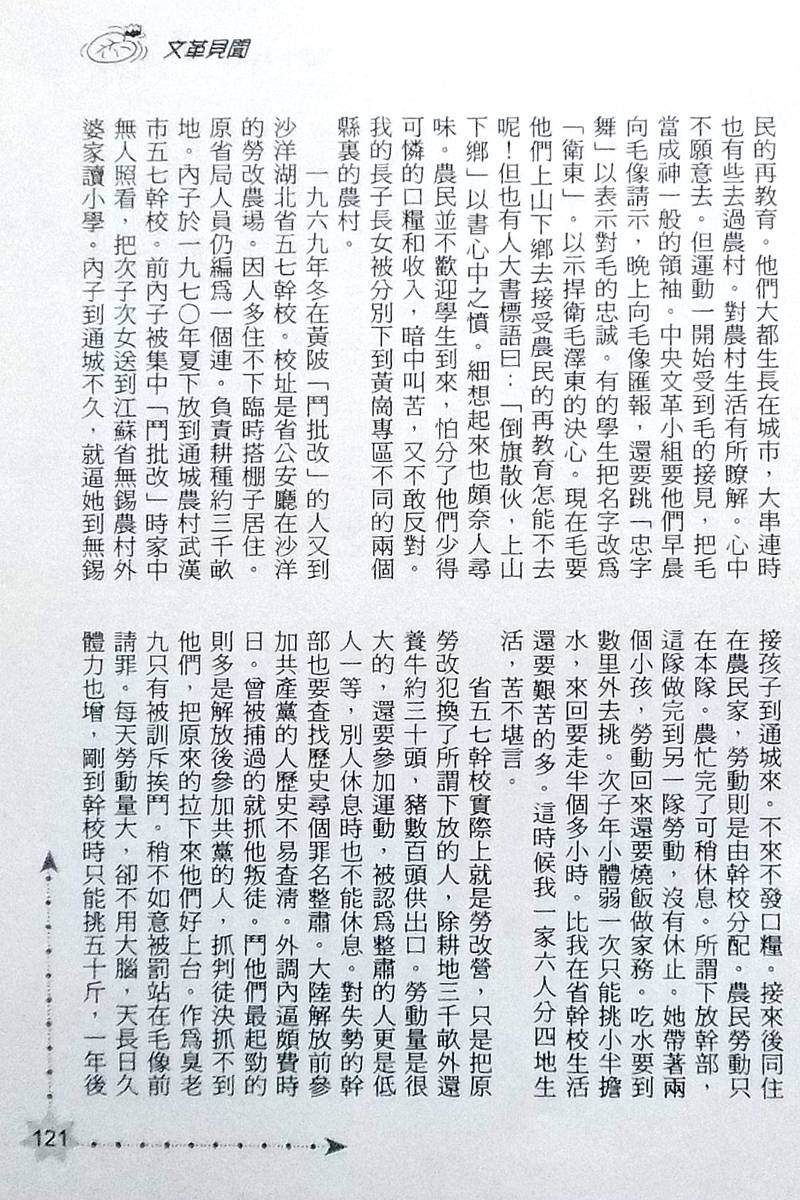 文革見聞
民的再教育。他們大都生長在城市，大串連時
也有些去過農村。對農村生活有所瞭解。心中
不願意去。但運動一開始受到毛的接見，把毛
當成神一般的領袖。中央文革小組要他們早晨
向毛像請示，晚上向毛像匯報，還要跳「忠字
舞」以表示對毛的忠誠。有的學生把名字改爲
「衛東」。以示捍衛毛澤東的決心。現在毛要
他們上山下鄉去接受農民的再教育怎能不去
呢！但也有人大書標語曰：「倒旗散伙，上山
下鄉」以書心中之憤。細想起來也頗奈人尋
味。農民並不歡迎學生到來，怕分了他們少得
可憐的口糧和收入，暗中叫苦，又不敢反對。
我的長子長女被分別下到黃崗專區不同的兩個
縣裏的農村。
一九六九年冬在黃陂「鬥批改」的人又到
沙洋湖北省五七幹校。校址是省公安廳在沙洋
的勞改農場。因人多住不下臨時搭棚子居住。
原省局人員仍編爲一個連。負責耕種約三千畝
地。內子於一九七〇年夏下放到通城農村武漢
市五七幹校。前內子被集中「鬥批改」時家中
無人照看，把次子次女送到江蘇省無錫農村外
婆家讀小學。內子到通城不久，就逼她到無錫
接孩子到通城來。不來不發口糧。接來後同住
在農民家，勞動則是由幹校分配。農民勞動只
在本隊。農忙完了可稍休息。所謂下放幹部，
這隊做完到另一隊勞動，沒有休止。她帶著兩
個小孩，勞動回來還要燒飯做家務。吃水要到
數里外去挑。次子年小體弱一次只能挑小半擔
水，來回要走半個多小時。比我在省幹校生活
還要艱苦的多。這時候我一家六人分四地生
活，苦不堪言。
省五七幹校實際上就是勞改營，只是把原
勞改犯換了所謂下放的人，除耕地三千畝外還
養牛約三十頭，豬數百頭供出口。勞動量是很
大的，還要參加運動，被認爲整肅的人更是低
人一等，別人休息時也不能休息。對失勢的幹
部也要查找歷史尋個罪名整肅。大陸解放前參
加共產黨的人歷史不易查清。外調內逼頗費時
日。曾被捕過的就抓他叛徒。鬥他們最起勁的
則多是解放後參加共黨的人，抓判徒決抓不到
他們，把原來的拉下來他們好上台。作爲臭老
九只有被訓斥挨鬥。稍不如意被罰站在毛像前
請罪。每天勞動量大，卻不用大腦，天長日久
體力也增，剛到幹校時只能挑五十斤，一年後
121